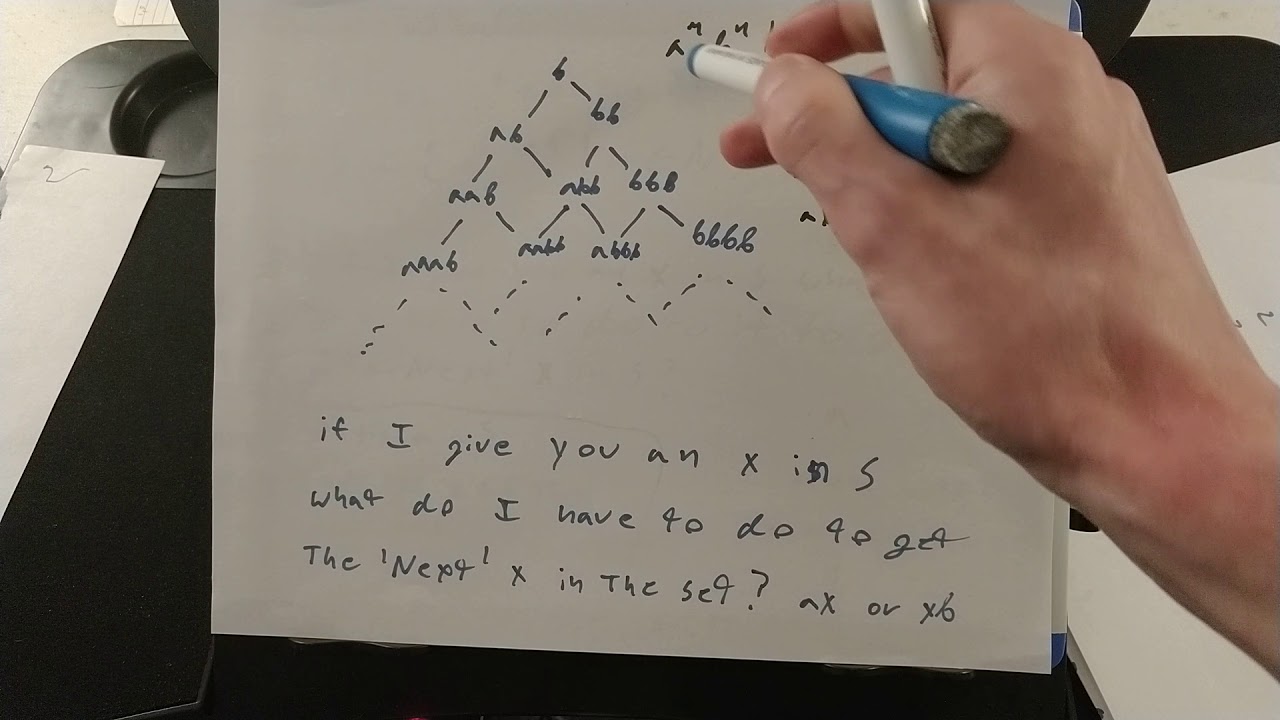 aⁿ bⁿ
b
bb
ab
aab
abb
bbb
aaab
aabb
abbb
bbbb
if I give you an x in S
what do I have to do to get
The 'Next' x in The set? ax or xb
2
2